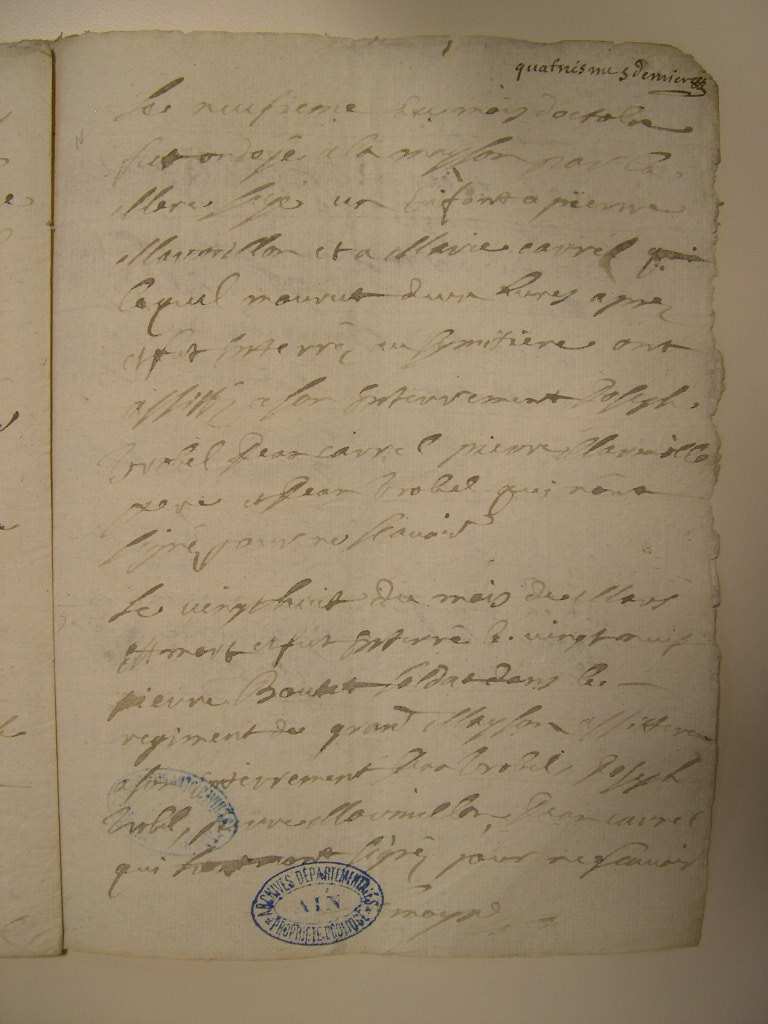 quatriesme & dernier
Le neufieme du mois d'octobre
fut ondoyé a la mayson par la
Mere sage un Enfant a pierre
Marmillon et a Marie carrel
lequel mourut deux heures apres
et fut Enterré au symitiere ont
assisté a son Enterrement Joseph
Trobel Jean carrel pierre Marmillo
pere et Jean Trobel qui n'ont
signé pour ne scavoir
Le vingthuit du mois de Mars
est mort et fut Enterré le vingt neuf
pierre soldat dans le
regiment de grand Mayson assisterent
a son enterrement Jean trobel, Joseph
Trobel, pierre Marmillon Jean carrel
qui n'ont signé pour ne scavoir
ARCHIVES DÉPARTEMENTALES
AIN
PROPRIÉTÉ PUBLIQUE